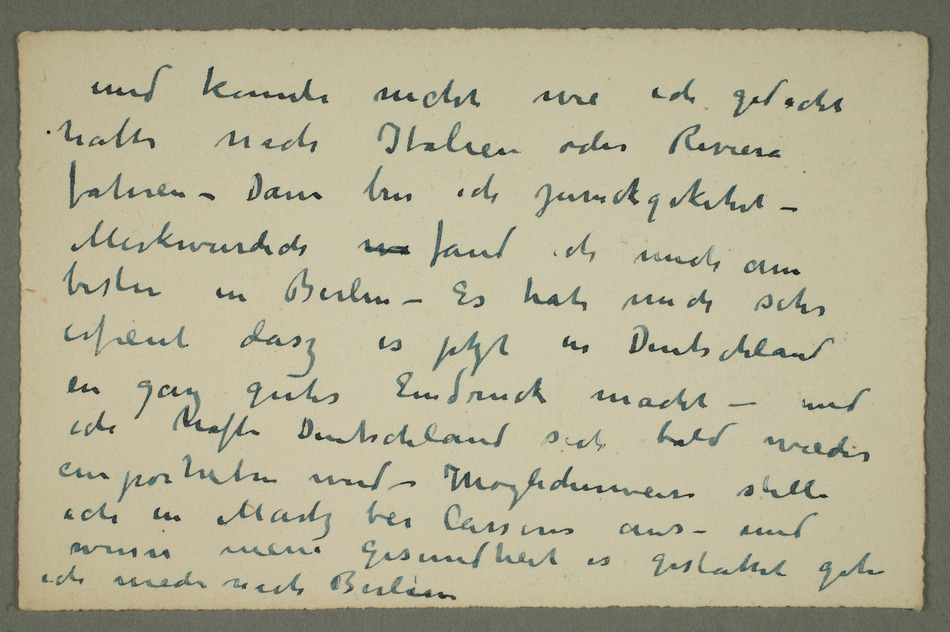 und konnte nicht wie ich gedacht
hatte nach Italien oder Riviera
fahren – Dann bin ich zurückgekehrt –
Merkwurdich fand ich mich am
besten in Berlin – Es hat mich sehr
erfreut dasz es jetzt in Deutschland
en ganz gutes Eindruck macht – und
ich hoffe Deutschland sich bald wieder
emporheben wird – Möglicherweise stelle
ich in Martz bei Cassirer aus – und
wenn meine Gesundheit es gestattet gehe
ich wieder nach Berlin